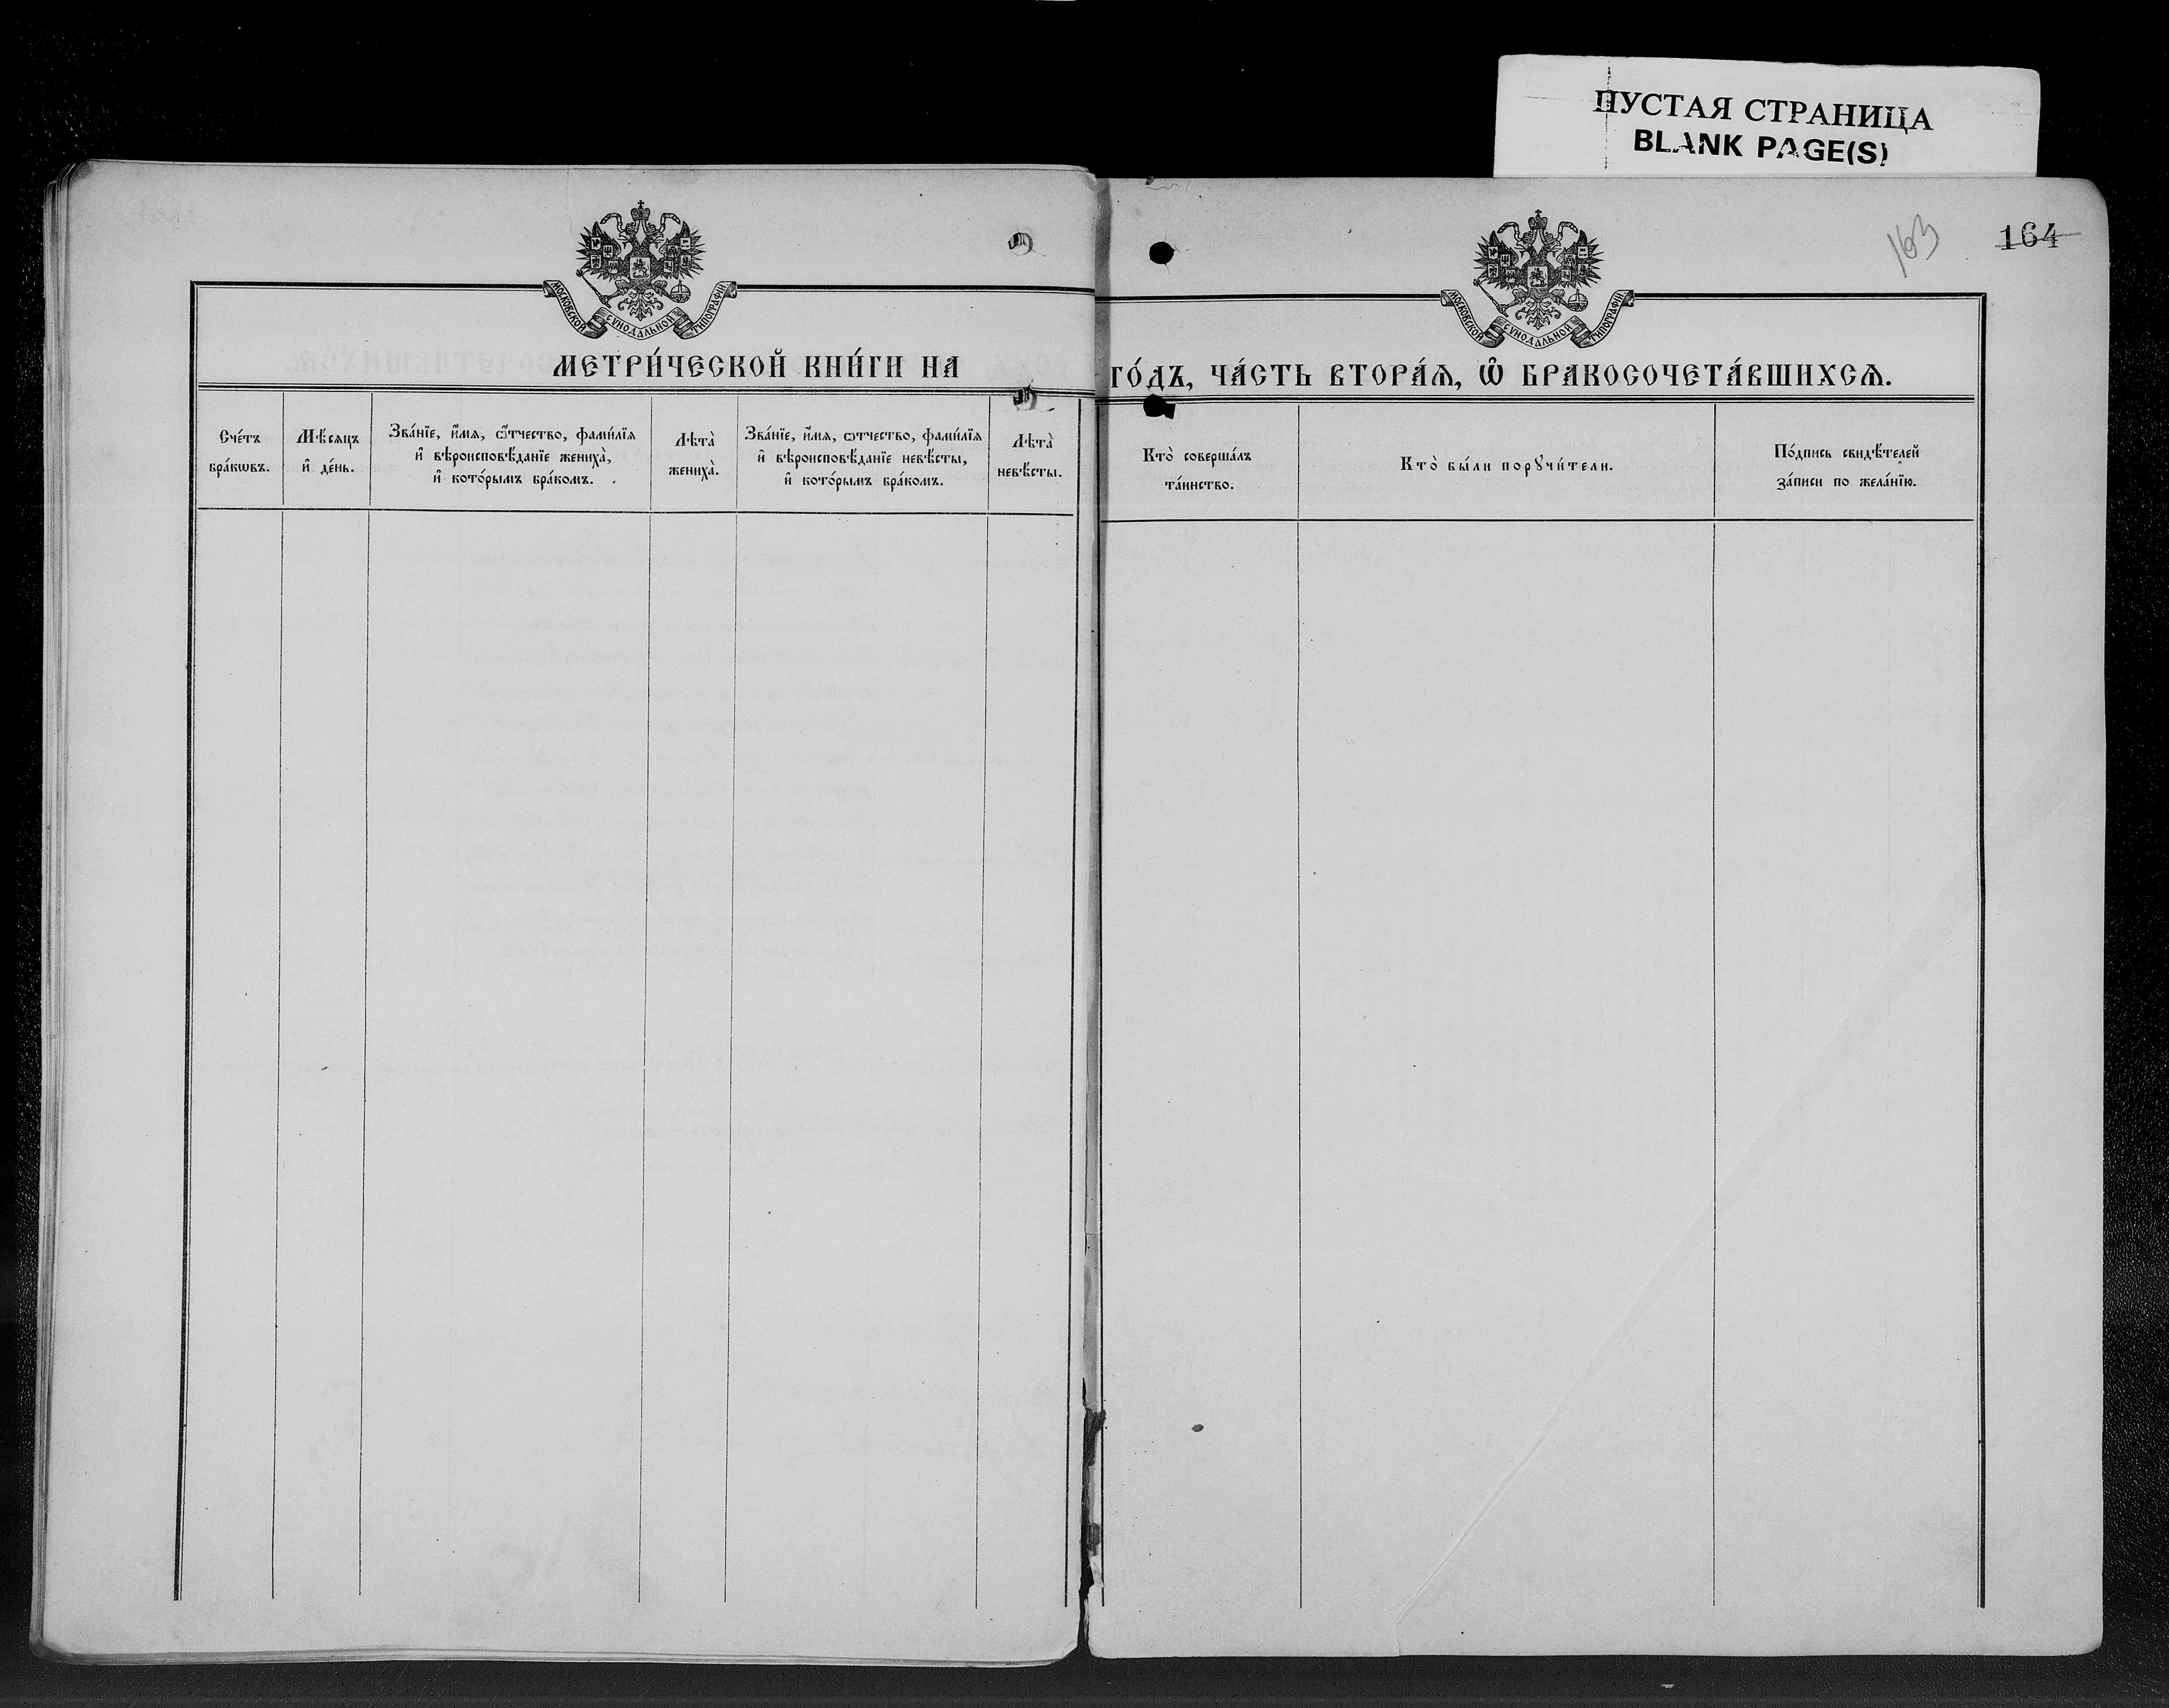 ПУСТАЯ СТРАНИЦА
BLANK PAGE(S)
163
164
МОСКОВСКОЙ СѴНОДАЛЬНОЙ ТИПОГРАФІИ
МОСКОВСКОЙ СѴНОДАЛЬНОЙ ТИПОГРАФІИ
МЕТРИ́ЧЕСКОЙ КНИ́ГИ НА
ГО́ДЪ, ЧА́СТЬ ВТОРА́Ѧ, Ѽ БРАКОСОЧЕТА́ВШИХСѦ.
Сче́тъ
бра́кѡвъ.
Мѣ́сяцъ
и҆ де́нь.
Зва́нїе, и҆́мѧ, ѻ҆́тчество, фами́лїѧ
и҆ вѣроисповѣ́данїе жениха̀,
и҆ кото́рымъ бра́комъ.
Лѣта̀
жениха̀.
Зва́нїе, и҆́мѧ, ѻтчество, фами́лїѧ
и҆ вѣроисповѣ́данїе невѣ́сты,
и҆ кото́рымъ бра́комъ.
Лѣта̀
невѣ́сты.
Кто̀ соверша́лъ
та́инство.
Кто̀ бы́ли порꙋчи́тели.
По́дпись свидѣ́телей
за́писи по жела́нїю.